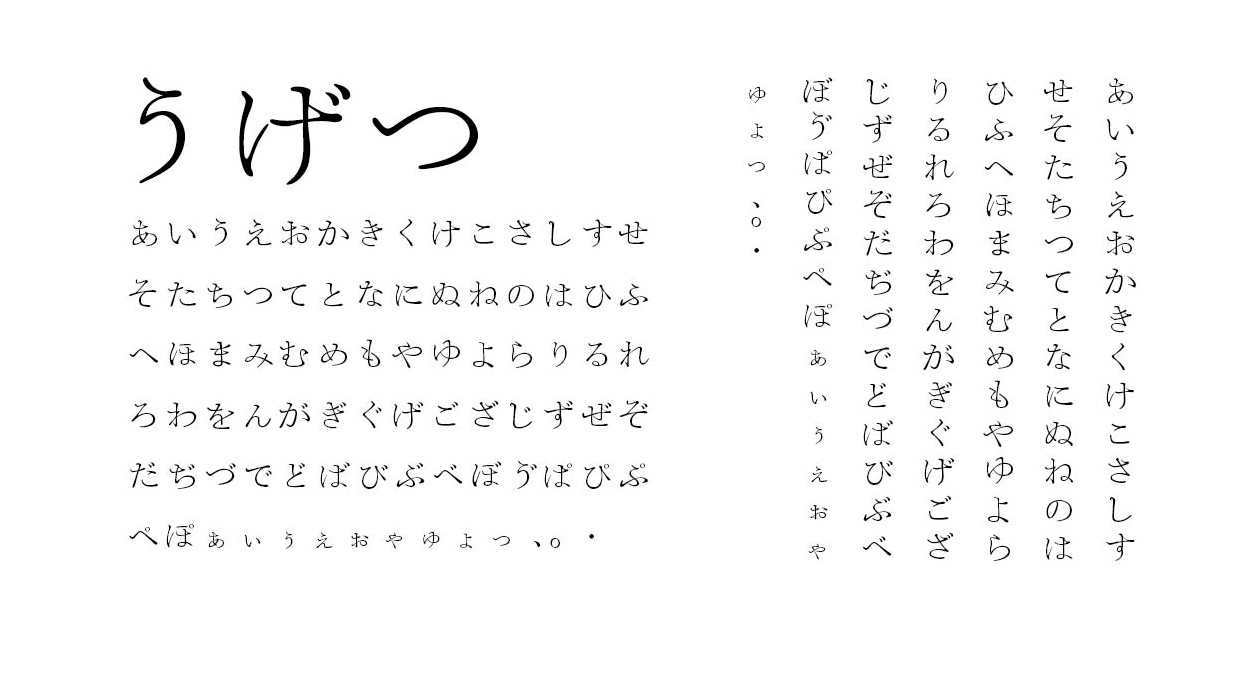 うげつ
あいうえおかきくけこさしすせ
そたちつてとなにぬねのはひふ
へほまみむめもやゆよらりるれ
ろわをんがぎぐげござじずぜぞ
だぢづでどばびぶべぼゔぱぴぷ
ぺぽぁぃぅぇぉゃゅょっ、。・
あいうえおかきくけこさしす
せそたちつてとなにぬねのは
ひふへほまみむめもやゆよら
りるれろわをんがぎぐげござ
じずぜぞだぢづでどばびぶべ
ぼゔぱぴぷぺぽぁぃぅぇぉゃ
ゅょっ、。・